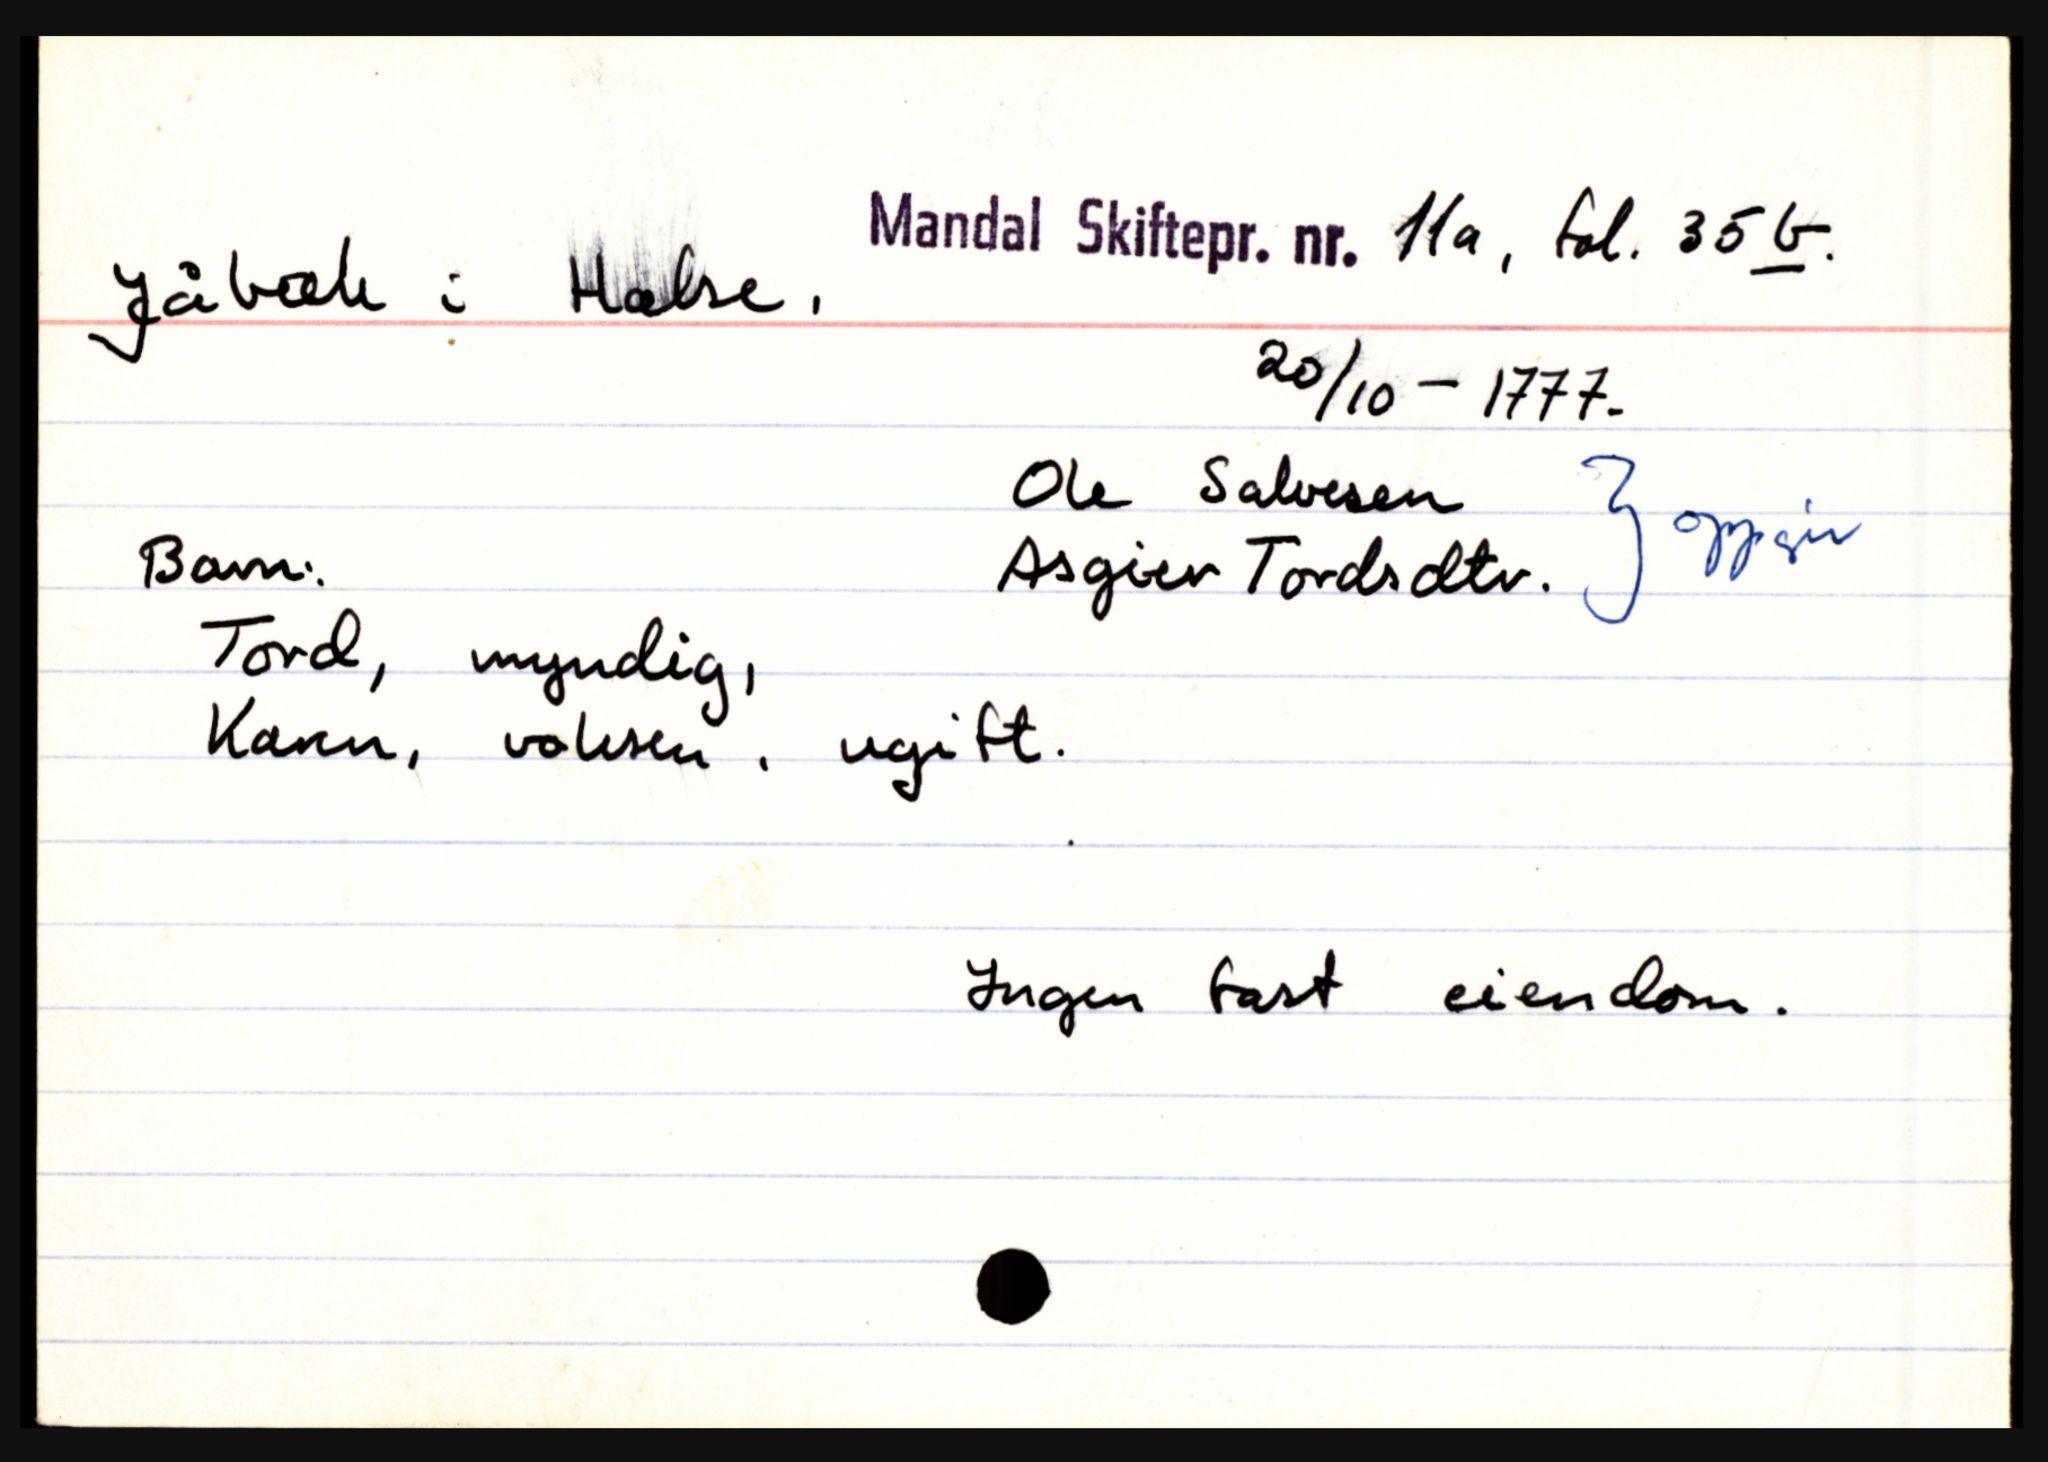 Mandal Skiftepr. nr. 11a, fol. 35 b.
Jåbæk i Halse.
20/10 - 1777.
Ole Salvesen
Asgier Tordsdtr. } oppgir
Barn:
Tord, myndig,
Karen, voksen, ugift.
Ingen fast eiendom.